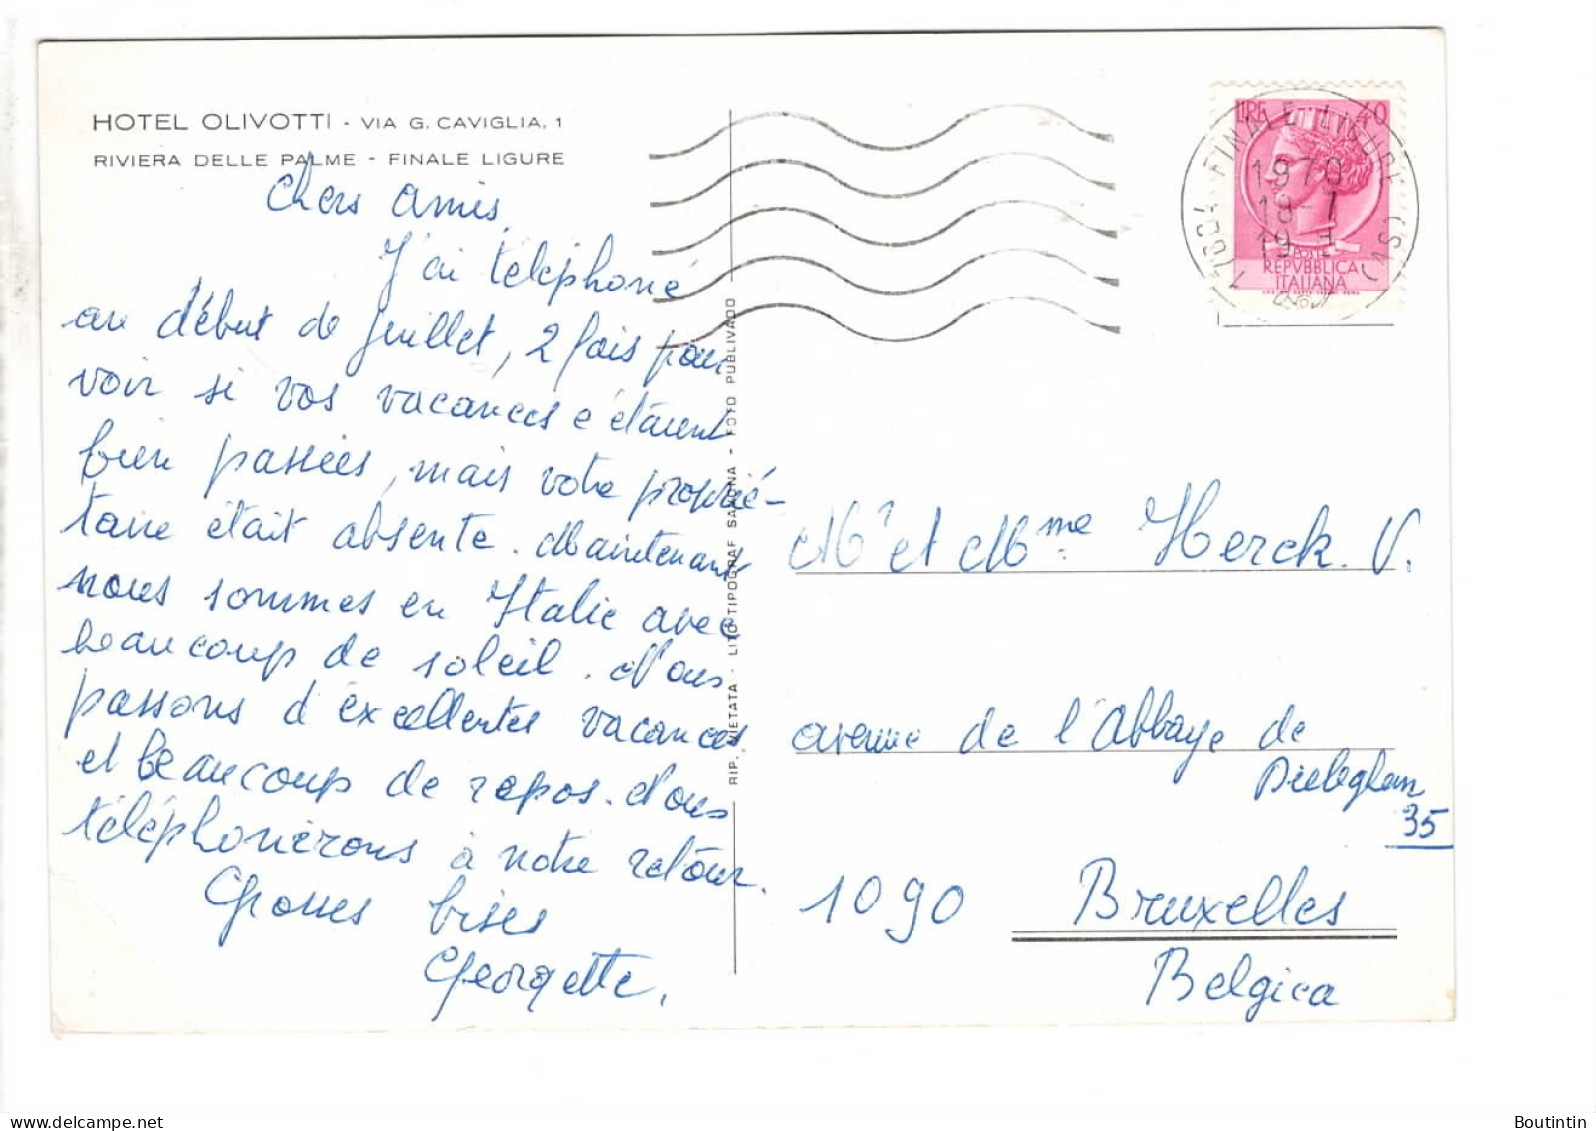 HOTEL OLIVOTTI - VIA G. CAVIGLIA, 1
RIVIERA DELLE PALME - FINALE LIGURE
Chers amis,
J'ai téléphoné
au début de juillet, 2 fois pour
voir si vos vacances s'étaient
bien passées, mais votre proprié-
taire était absente. Maintenant
nous sommes en Italie avec
beaucoup de soleil. Nous
passons d'excellentes vacances
et beaucoup de repos. Nous
téléphonerons à notre retour.
Grosses bises
Georgette.
RIP. VIETATA - LITO TIPOGRAF SAVONA - FOTO PUBLIVADO
LIRE 40
POSTE
REPVBBLICA
ITALIANA
17024 FINALE LIGURE (SV)
1970
19-7
19-
Mr et Mme Herck. V.
avenue de l'Abbaye de
Dieleghem
35
1090 Bruxelles
Belgica
Boutintin